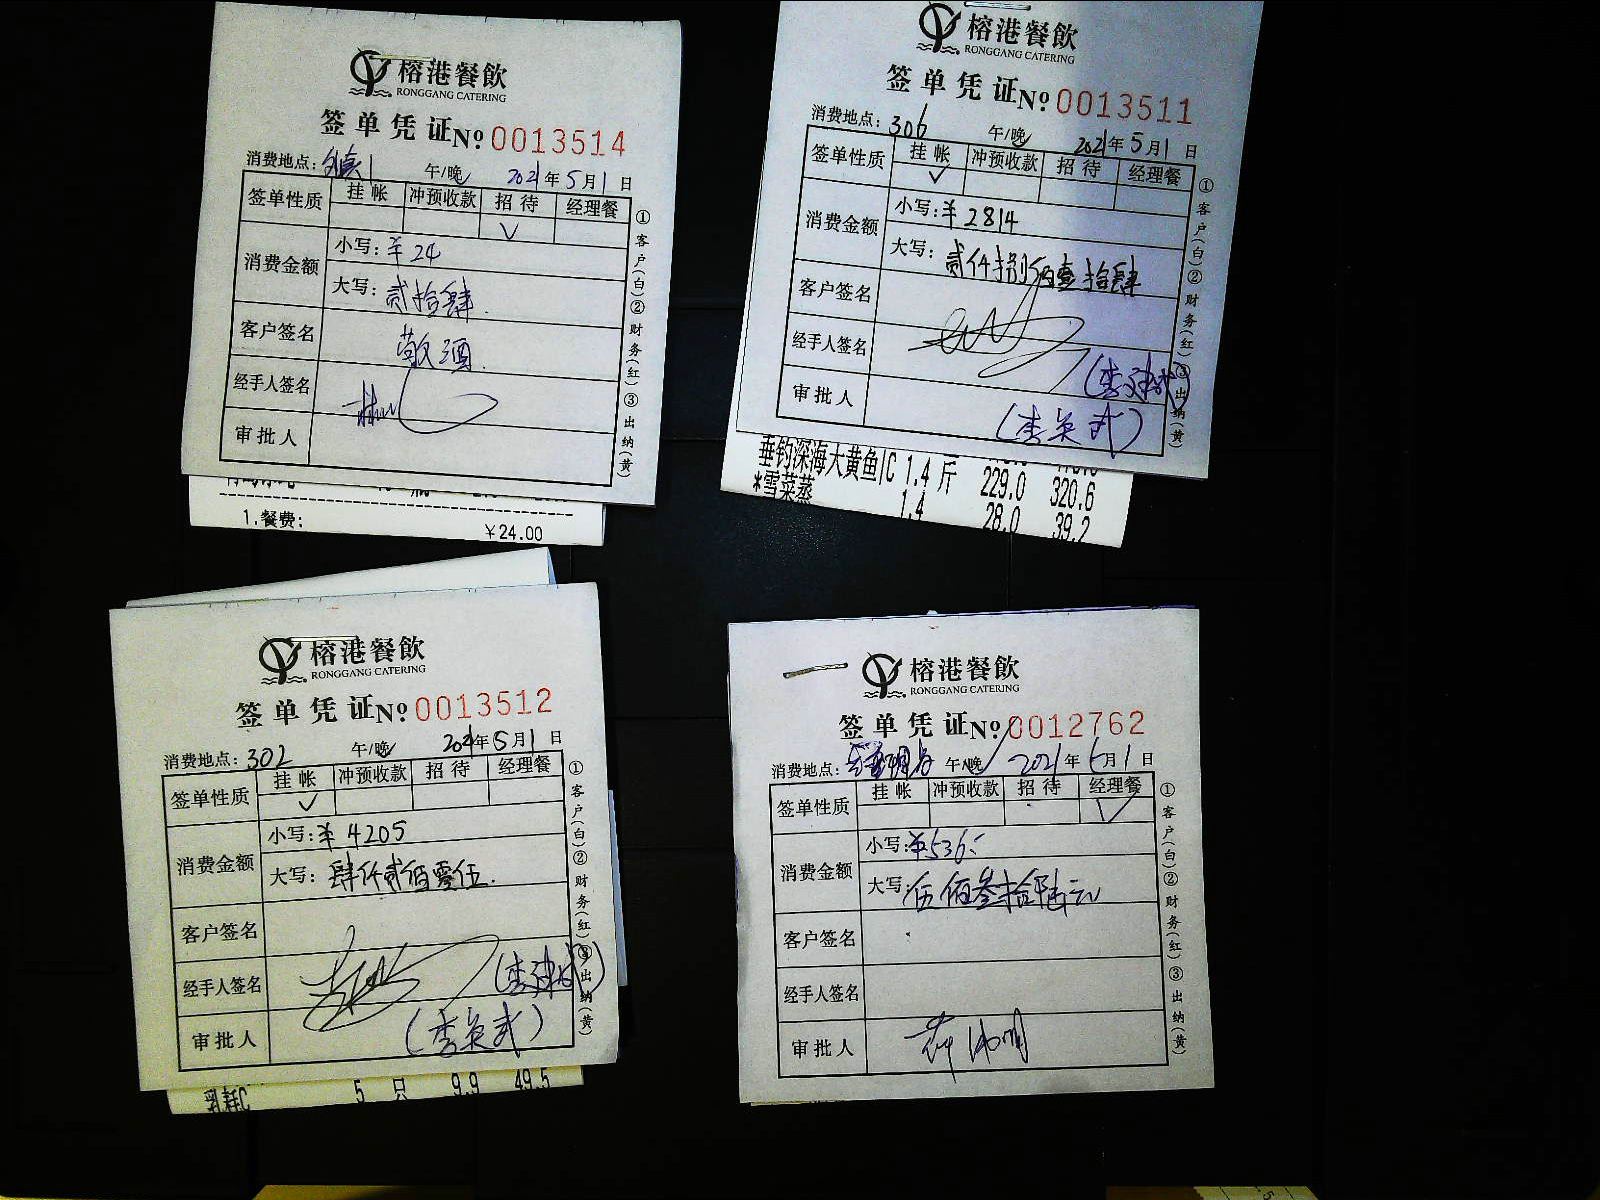 榕港餐飲
RONGGANG CATERING
签单凭证№0013514
消费地点: 午/晚 2021年5月1日
签单性质 挂帐 冲预收款 招待 经理餐
√
消费金额 小写:¥24
大写:贰拾肆.
客户签名 敬酒.
经手人签名
审批人
①客户(白)②财务(红)③出纳(黄)
1.餐费: ¥24.00
榕港餐飲
RONGGANG CATERING
签单凭证№0013511
消费地点:306 午/晚 2021年5月1日
签单性质 挂帐 冲预收款 招待 经理餐
√
消费金额 小写:¥2814
大写:贰仟捌佰壹拾肆
客户签名
经手人签名
审批人 (李英武)
①客户(白)②财务(红)③出纳(黄)
垂钓深海大黄鱼IC 1.4 斤 229.0 320.6
*雪菜蒸 1.4 28.0 39.2
榕港餐飲
RONGGANG CATERING
签单凭证№0013512
消费地点:302 午/晚 2021年5月1日
签单性质 挂帐 冲预收款 招待 经理餐
√
消费金额 小写:¥4205
大写:肆仟贰佰零伍.
客户签名
经手人签名
审批人 (李英武)
①客户(白)②财务(红)③出纳(黄)
5 只 9.9 49.5
榕港餐飲
RONGGANG CATERING
签单凭证№0012762
消费地点: 午/晚 2021年6月1日
签单性质 挂帐 冲预收款 招待 经理餐
√
消费金额 小写:¥536
大写:伍佰叁拾陆元
客户签名
经手人签名
审批人
①客户(白)②财务(红)③出纳(黄)